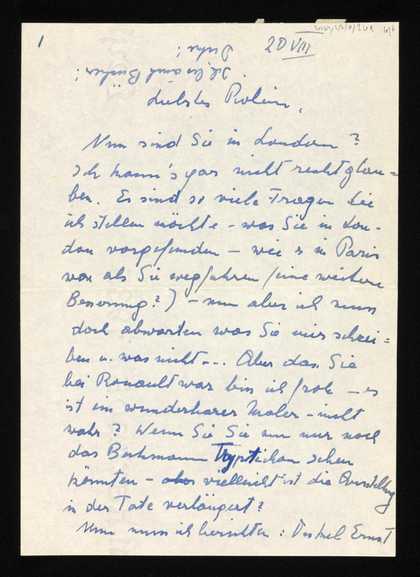 1
20 VIII
Liebstes Rolein,
Nun sind Sie in London?
Ich kann's gar nicht recht glau=
ben. Es sind so viele Fragen die
ich stellen möchte – was Sie in Lon-
don vorgefunden – wie's in Paris
war als Sie wegfuhren (eine weitere
Besserung?) – nun aber ich muss
doch abwarten was Sie mir schrei=
ben u. was nicht... Aber dass Sie
bei Rouault war bin ich froh – es
ist ein wunderbarer Maler – nicht
wahr? Wenn Sie Sie nun nur noch
das Beckmann Tryptichon sehen
könnten – aber vielleicht ist die Ausstellung
in der Tate verlängert?
Nun muss ich berichten: Onkel Ernst